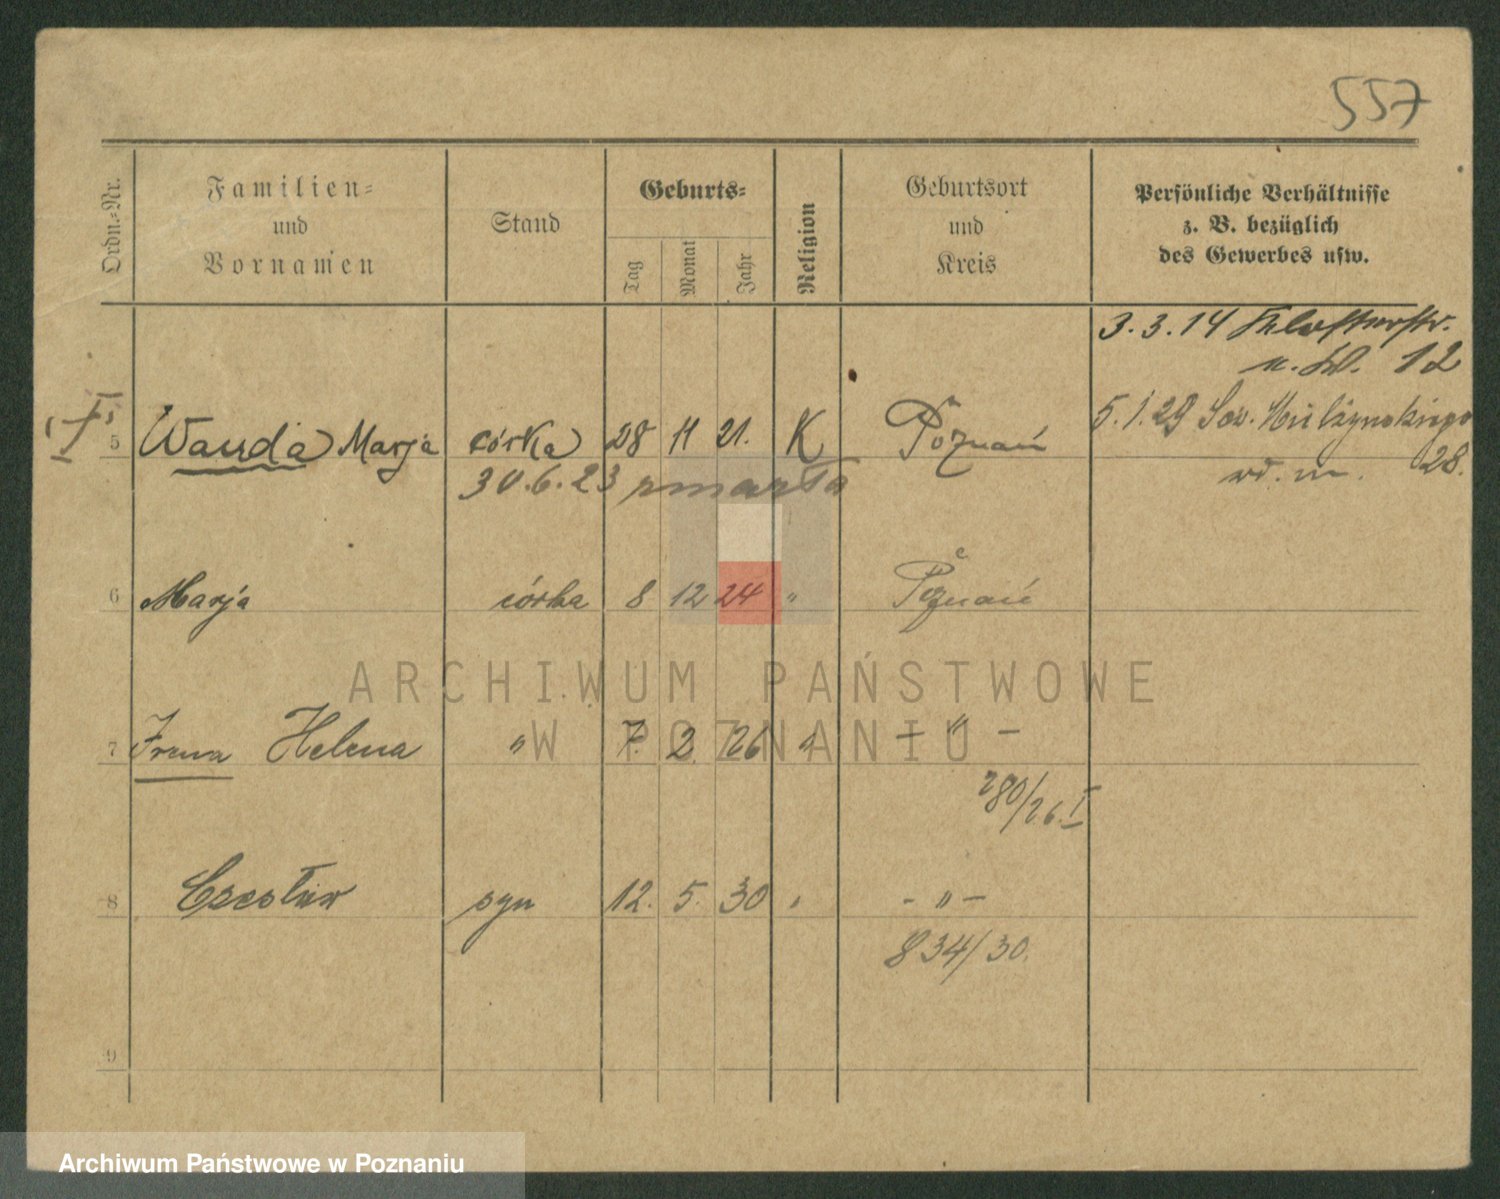 557
Ordn.-Nr.
Familien-
und
Vornamen
Stand
Geburts-
Tag
Monat
Jahr
Religion
Geburtsort
und
Kreis
Persönliche Verhältnisse
z. B. bezüglich
des Gewerbes usw.
3.3.14 Klosterstr.
12
5 Wanda Marja córka 28 11 21. K Poznań
5.1.29
28.
30.6.23 zmarła
6 Marja córka 8 12 24 " Poznań
ARCHIWUM PAŃSTWOWE
W POZNANIU
7 Irena Helena " 7. 2. 26 " - " -
280/26. I
8 Czesław syn 12. 5. 30 " - " -
834/30.
9
Archiwum Państwowe w Poznaniu